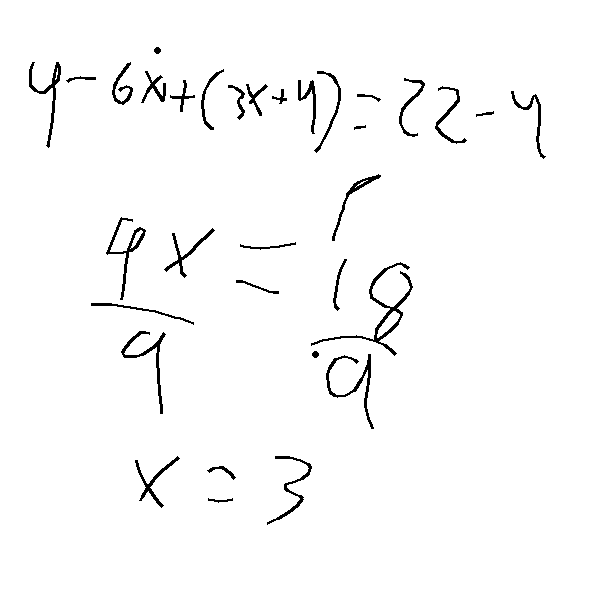 4-6x+(3x+4)=22-4
9x=18
9 9
x=3